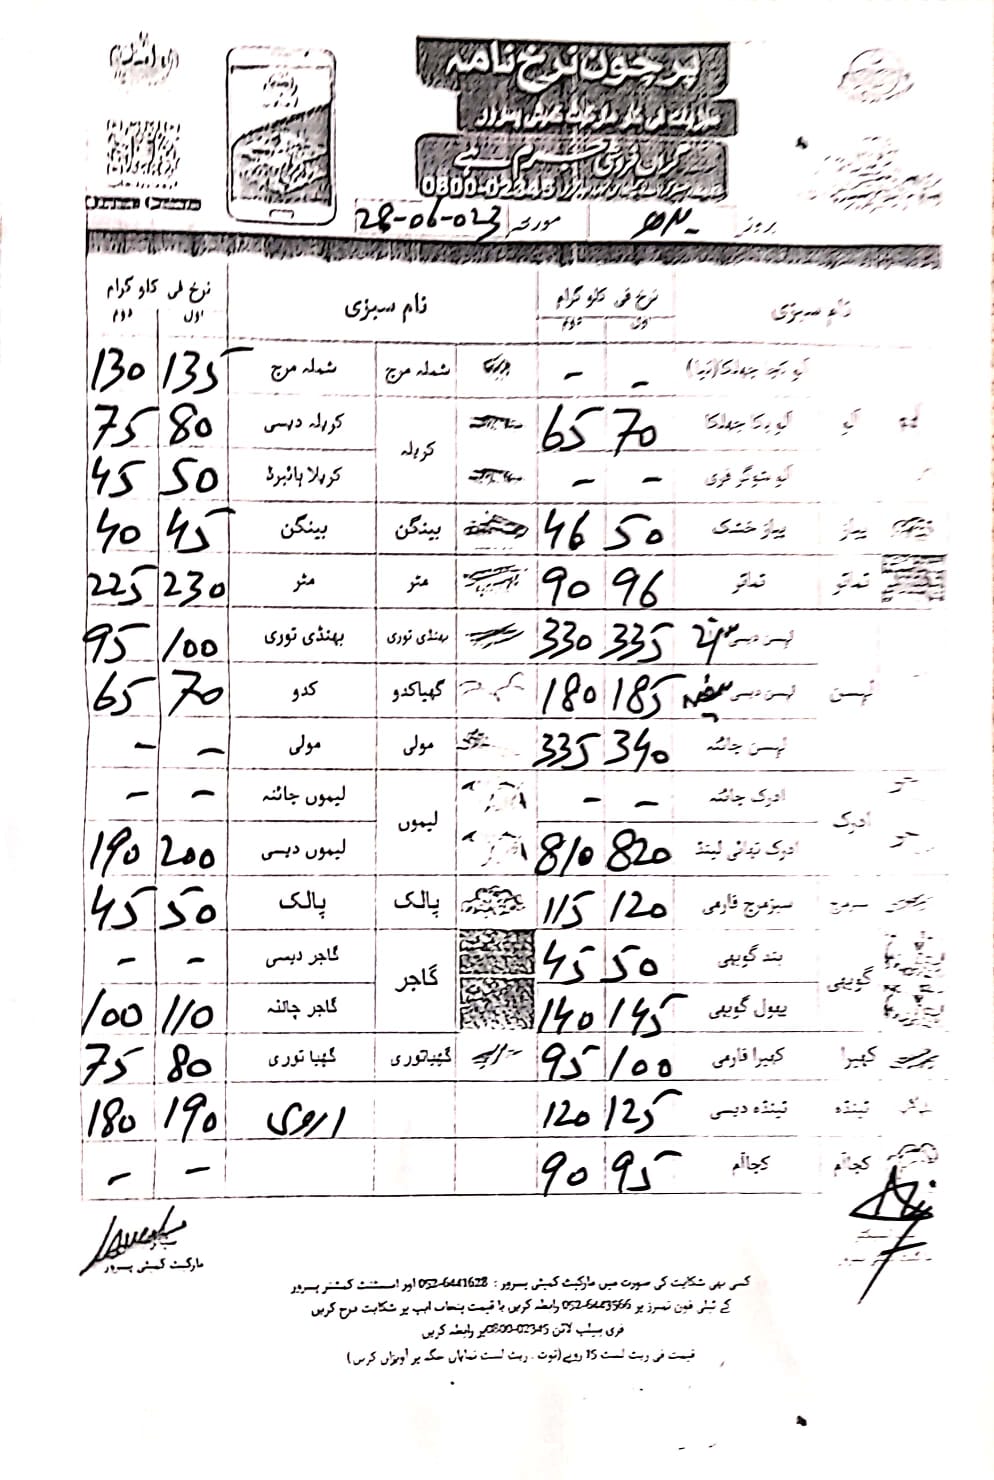 پرچون نرخ نامہ
گراں فروشی جرم ہے
0800-02345
بروز بدھ مورخہ 28-06-023
نام سبزی نرخ فی کلو گرام اول دوم نام سبزی نرخ فی کلو گرام اول دوم
آلو کچا چھلکا (نیا) - - شملہ مرچ شملہ مرچ 135 130
آلو آلو پکا چھلکا 70 65 کریلہ کریلہ دیسی 80 75
آلو شوگر فری - - کریلا ہائبرڈ 50 45
پیاز پیاز خشک 50 46 بینگن بینگن 45 40
ٹماٹر ٹماٹر 96 90 مٹر مٹر 230 225
لہسن دیسی 335 330 بھنڈی توری بھنڈی توری 100 95
لہسن لہسن دیسی سفید 185 180 گھیاکدو کدو 70 65
لہسن چائنہ 340 335 مولی مولی - -
ادرک ادرک چائنہ - - لیموں لیموں چائنہ - -
ادرک تھائی لینڈ 820 810 لیموں دیسی 200 190
سبزمرچ فارمی 120 115 پالک پالک 50 45
گوبھی بند گوبھی 50 45 گاجر گاجر دیسی - -
پھول گوبھی 145 140 گاجر چائنہ 110 100
کھیرا کھیرا فارمی 100 95 گھیاتوری گھیا توری 80 75
ٹینڈہ ٹینڈہ دیسی 125 120 اروی 190 180
کچاآم کچاآم 95 90 - -
مارکیٹ کمیٹی پسرور
کسی بھی شکایت کی صورت میں مارکیٹ کمیٹی پسرور : 052-6441628 اور اسسٹنٹ کمشنر پسرور
کے ٹیلی فون نمبرز پر 052-6443566 رابطہ کریں یا قیمت پنجاب ایپ پر شکایت درج کریں
فری ہیلپ لائن 0800-02345 پر رابطہ کریں
قیمت فی ریٹ لسٹ 15 روپے (نوٹ ۔ ریٹ لسٹ نمایاں جگہ پر آویزاں کریں)